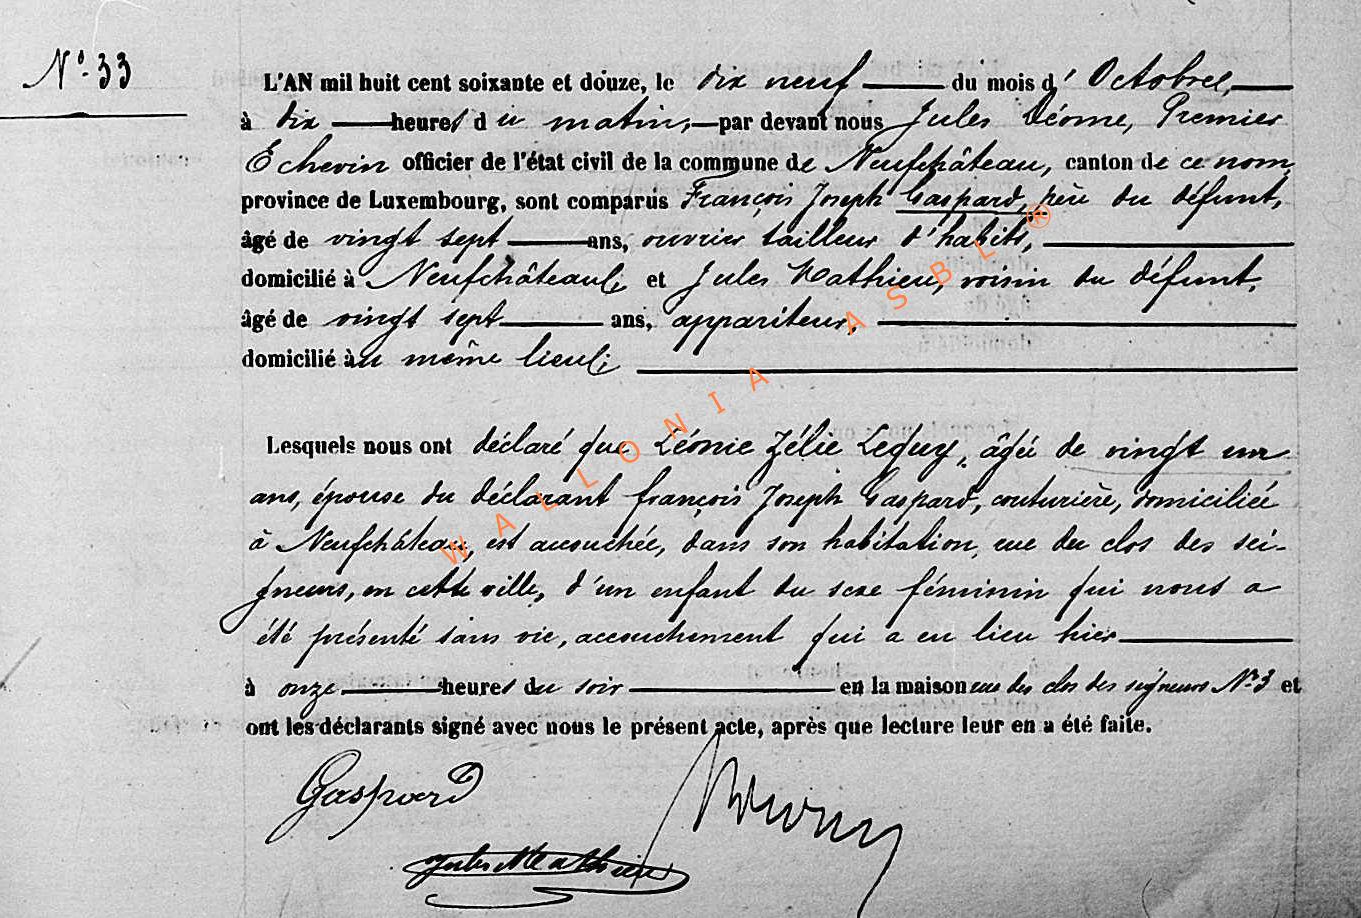 N° 33
L'AN mil huit cent soixante et douze, le dix neuf du mois d'Octobre,
à dix heures du matin, par devant nous Jules Déome, Premier
Echevin officier de l'état civil de la commune de Neufchâteau, canton de ce nom,
province de Luxembourg, sont comparus François Joseph Gaspard, père du défunt,
âgé de vingt sept ans, ouvrier tailleur d'habits,
domicilié à Neufchâteau; et Jules Mathieu, voisin du défunt,
âgé de vingt sept ans, appariteur,
domicilié au même lieu;
Lesquels nous ont déclaré que Léonie Zélie Leguy, âgée de vingt un
ans, épouse du déclarant françois Joseph Gaspard, couturière, domiciliée
à Neufchâteau, est accouchée, dans son habitation, rue du clos des sei-
gneurs, en cette ville, d'un enfant du sexe féminin qui nous a
été présenté sans vie, accouchement qui a eu lieu hier
à onze heures du soir en la maison rue des clos des seigneurs N° 3 et
ont les déclarants signé avec nous le présent acte, après que lecture leur en a été faite.
Gaspard
Jules Mathieu
WALLONIA ASBL ®